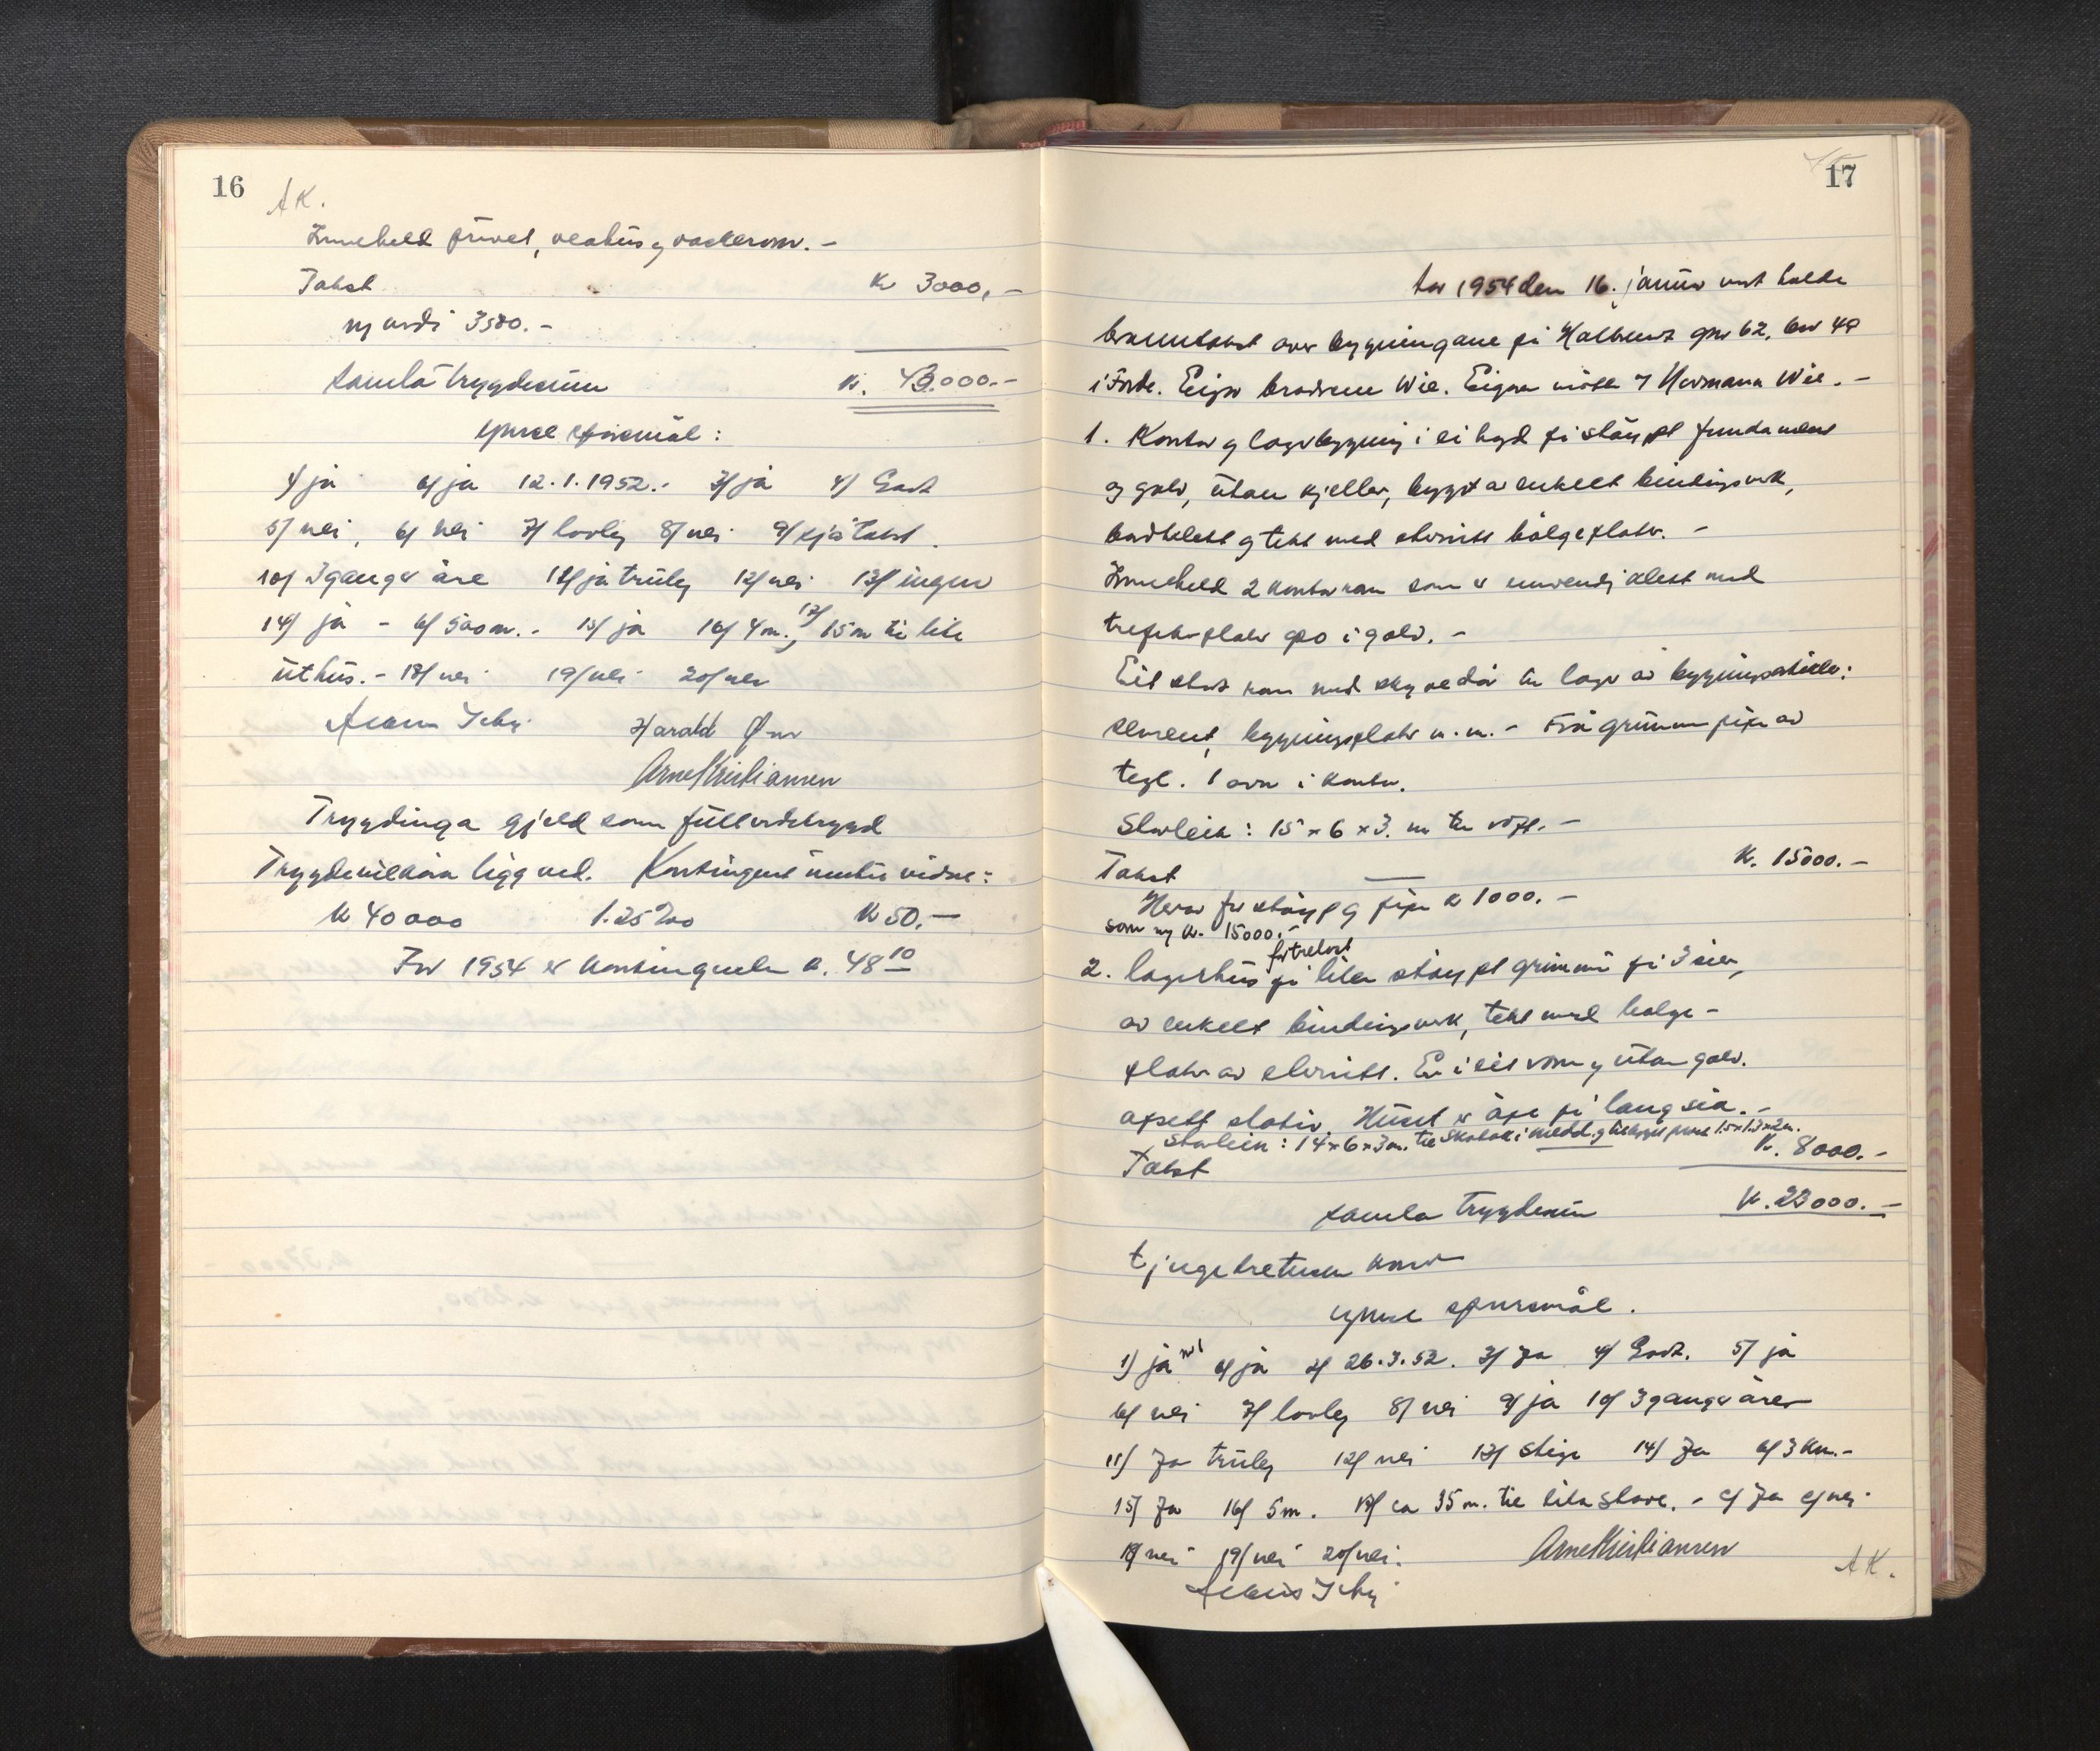 16
AK.
Inneheld privet, vedhus og vaskerom. -
Takst kr 3000,-
ny verdi 3500.-
Samla trygdesum kr. 43.000.-
Ymse spursmål:
1/ ja 2/ ja 12.1.1952.- 3/ ja 4/ Godt
5/ nei, 6/ nei 7/ lovleg 8/ nei 9/ sjå takst.
10/ 3 gangar året 11/ ja truleg 12/ nei 13/ ingen
14/ ja - b/ 500 m. - 15/ ja 16/ 4 m., 17/ 15 m til lite
uthus. - 18/ nei 19/ nei 20/ nei
Harald
Arne Kristiansen
Trygdinga gjeld som fullverdetrygd
Trygdevilkåra ligg ved. Kontingent
kr 40000 1.25‰ kr 50.-
For 1954 er kontingenten kr. 48 10
17
År 1954 den 16. januar vart halde
branntakst over bygningane på Halbrend gnr 62, bnr 48
i Førde. Eigar brørne Wie. Eigar møtte v/ Hermann Wie. -
1. Kontor og lagerbygning i ei høgd på støypt fundament
og golv, utan kjellar, bygt av enkelt bindingsverk,
bordkledt og tekt med eternitt bølgeplater. -
Inneheld 2 kontorrom som er innvendig kledt med
trefiberplater og i golv. -
Eit stort rom med skyvedør til lager av bygningsartiklar:
sement, bygningsplater m.m. - Frå grunnen pipe av
tegl. 1 omn i kontor.
Storleik: 15 x 6 x 3. m til røst. -
Takst kr. 15000.-
Herav for støyp og pipe kr 1000. -
som ny kr. 15000.-
2. Lagerhus for trelast på liten støypt grunnmur på 3 sier,
av enkelt bindingsverk, tekt med bølge-
plater av eternitt. Er i eit rom og utan golv.
Huset er åpe på langsia. -
Storleik: 14 x 6 x 3 m. 1.5 x 1.3 x 2 m.
Takst kr. 8000.-
Samla trygdesum kr. 23000.-
tjugetretusen kroner
Ymse spursmål.
1) ja nr 1 b/ ja 2/ 26.3.52. 3/ Ja 4/ Godt. 5/ ja
6/ nei 7/ lovleg 8/ nei 9/ ja 10/ 3 gangar året
11) Ja truleg 12/ nei 13/ stige 14/ Ja b/ 3 km.-
15/ Ja 16/ 5 m. 17/ ca 35 m. til lita stove. - c/ Ja e/ nei
18/ nei 19/ nei 20/ nei.
Arne Kristiansen
AK.